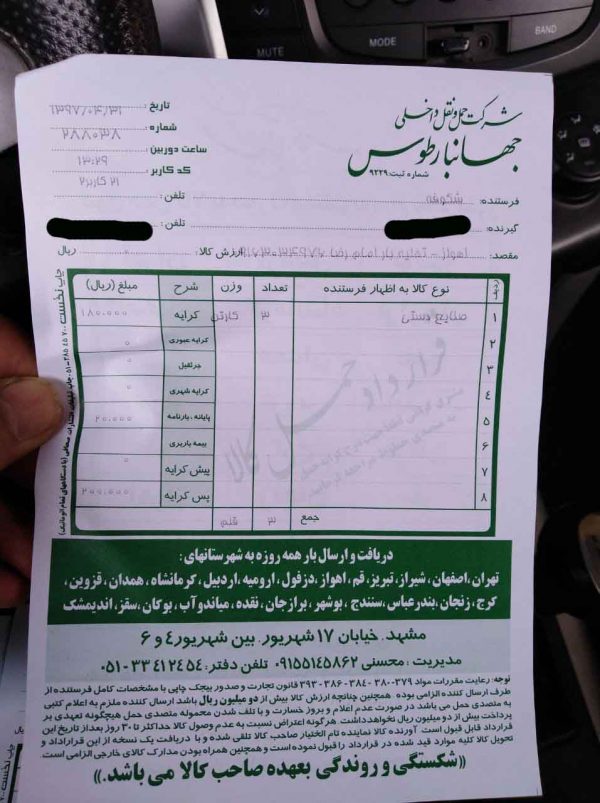 MUTE
MODE
BAND
شرکت حمل و نقل داخلی
جهانبار طوس
شماره ثبت: ۹۲۲۹
تاریخ : ۱۳۹۷/۰۴/۳۱
شماره : ۲۸۸۰۳۸
ساعت دوربین
۱۳:۲۹
کد کاربر :
۲۱ کاربر۲
فرستنده: شکوفه تلفن :
گیرنده: تلفن :
مقصد: اهواز - تخلیه بار امام رضا ارزش کالا: ریال
ردیف نوع کالا به اظهار فرستنده تعداد وزن شرح مبلغ (ریال)
۱ صنایع دستی ۳ کارتن کرایه ۱۸۰.۰۰۰
۲ کرایه عبوری ۰
۳ جرثقیل ۰
۴ کرایه شهری ۰
۵ پایانه ، بارنامه ۲۰.۰۰۰
۶ بیمه باربری
۷ پیش کرایه ۰
۸ پس کرایه ۲۰۰.۰۰۰
جمع ۳ قلم
قرارداد حمل کالا
دریافت و ارسال بار همه روزه به شهرستانهای :
تهران، اصفهان ، شیراز، تبریز، قم، اهواز ،دزفول ، ارومیه ،اردبیل ، کرمانشاه ، همدان ، قزوین ،
کرج ، زنجان ،بندرعباس ، سنندج ، بوشهر ، برازجان ، نقده ، میاندوآب ، بوکان ، سقز، اندیمشک
مشهد. خیابان ۱۷ شهریور. بین شهریور ۴ و ۶
مدیریت : محسنی ۰۹۱۵۵۱۴۵۸۶۲ تلفن دفتر: ۳۳۴۱۲۴۵۴-۰۵۱
توجه: رعایت مقررات مواد ۳۷۹-۳۸۰ - ۳۸۴ - ۳۸۶ - ۳۹۳ قانون تجارت و صدور بیجک چاپی با مشخصات کامل فرستنده از
طرف ارسال کننده الزامی بوده همچنین چنانچه ارزش کالا بیش از دو میلیون ریال باشد ارسال کننده ملزم به اعلام کتبی
به متصدی حمل می باشد در صورت عدم اعلام و بروز خسارت و یا تلف شدن محموله متصدی حمل هیچگونه تعهدی بر
پرداخت بیش از دو میلیون ریال نخواهدداشت. هرگونه اعتراض نسبت به عدم وصول کالا حداکثر تا ۳۰ روز بعداز تاریخ این
قرارداد قابل قبول است آورنده کالا نماینده تام الاختیار صاحب کالا تلقی شده و با دریافت یک نسخه از این قرارداد و
تحویل کالا کلیه موارد قید شده در قرارداد را قبول نموده است و همچنین همراه بودن مدارک کالای خارجی الزامی است.
«شکستگی و روندگی بعهده صاحب کالا می باشد.»